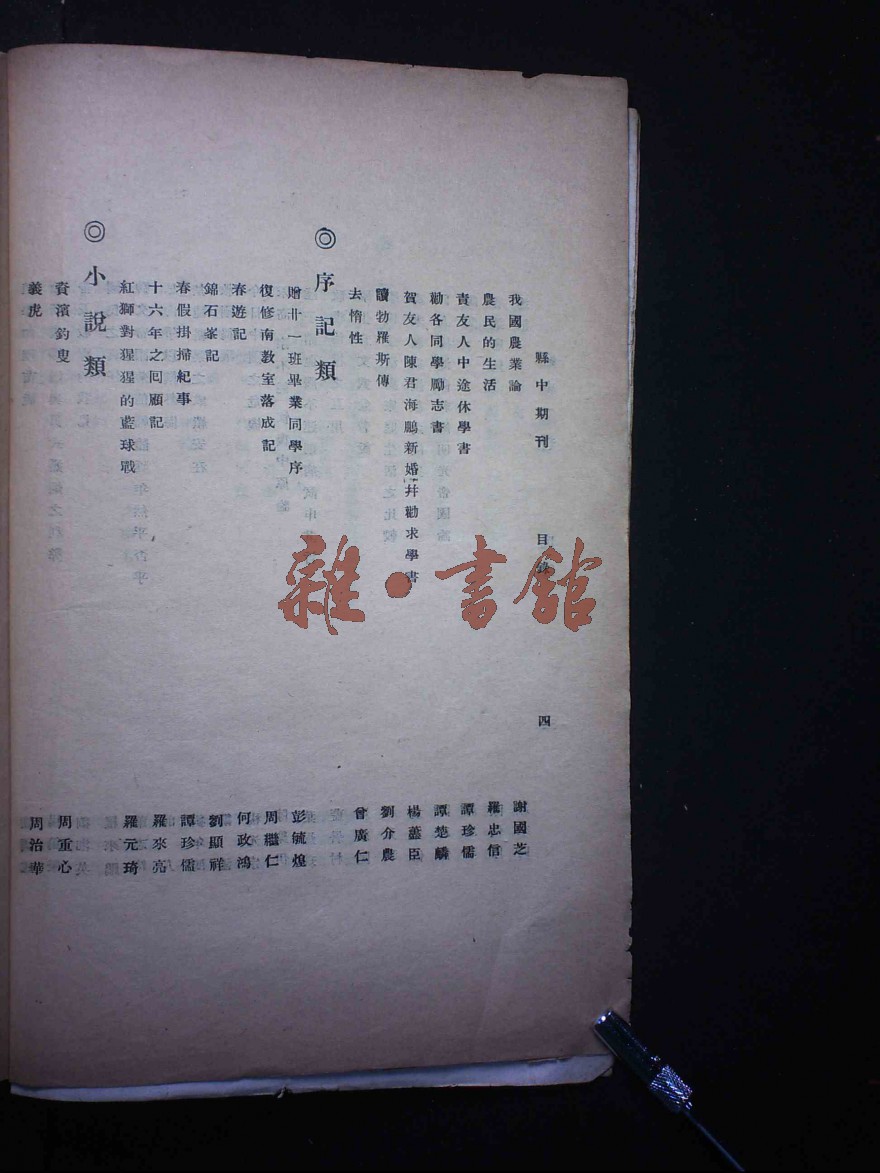 縣中期刊 目 四
我國農業論 謝國芝
農民的生活 羅忠信
責友人中途休學書 譚珍儒
勸各同學勵志書 譚楚麟
賀友人陳君海鵬新婚幷勸求學書 楊藎臣
讀勃羅斯傳 劉介農
去惰性 曾廣仁
◎序記類
贈卄一班畢業同學序 彭毓煌
復修南教室落成記 周繼仁
春遊記 何政鴻
錦石峯記 劉顯祥
春假掛掃紀事 譚珍儒
十六年之回顧記 羅來亮
紅獅對猩猩的藍球戰 羅元琦
◎小說類
資濱釣叟 周重心
義虎 周治華
雜·書館